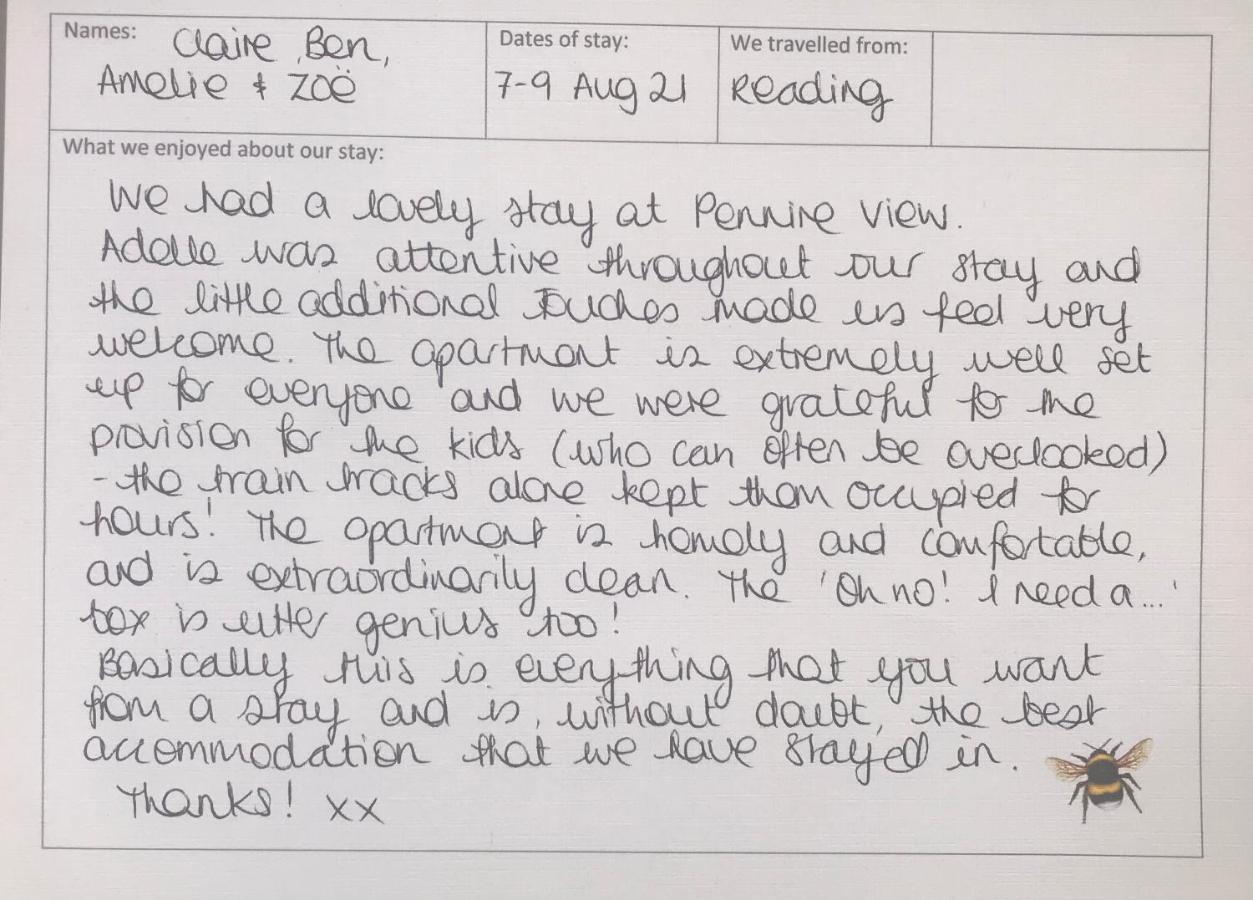 Names: Claire, Ben,
Amelie & Zoë
Dates of stay:
7-9 Aug 21
We travelled from:
Reading
What we enjoyed about our stay:
We had a lovely stay at Pennine View.
Adelle was attentive throughout our stay and
the little additional touches made us feel very
welcome. The apartment is extremely well set
up for everyone and we were grateful for the
provision for the kids (who can often be overlooked)
- the train tracks alone kept them occupied for
hours! The apartment is homely and comfortable,
and is extraordinarily clean. The 'Oh no! I need a...'
box is utter genius too!
Basically this is everything that you want
from a stay and is, without doubt, the best
accommodation that we have stayed in.
Thanks! xx